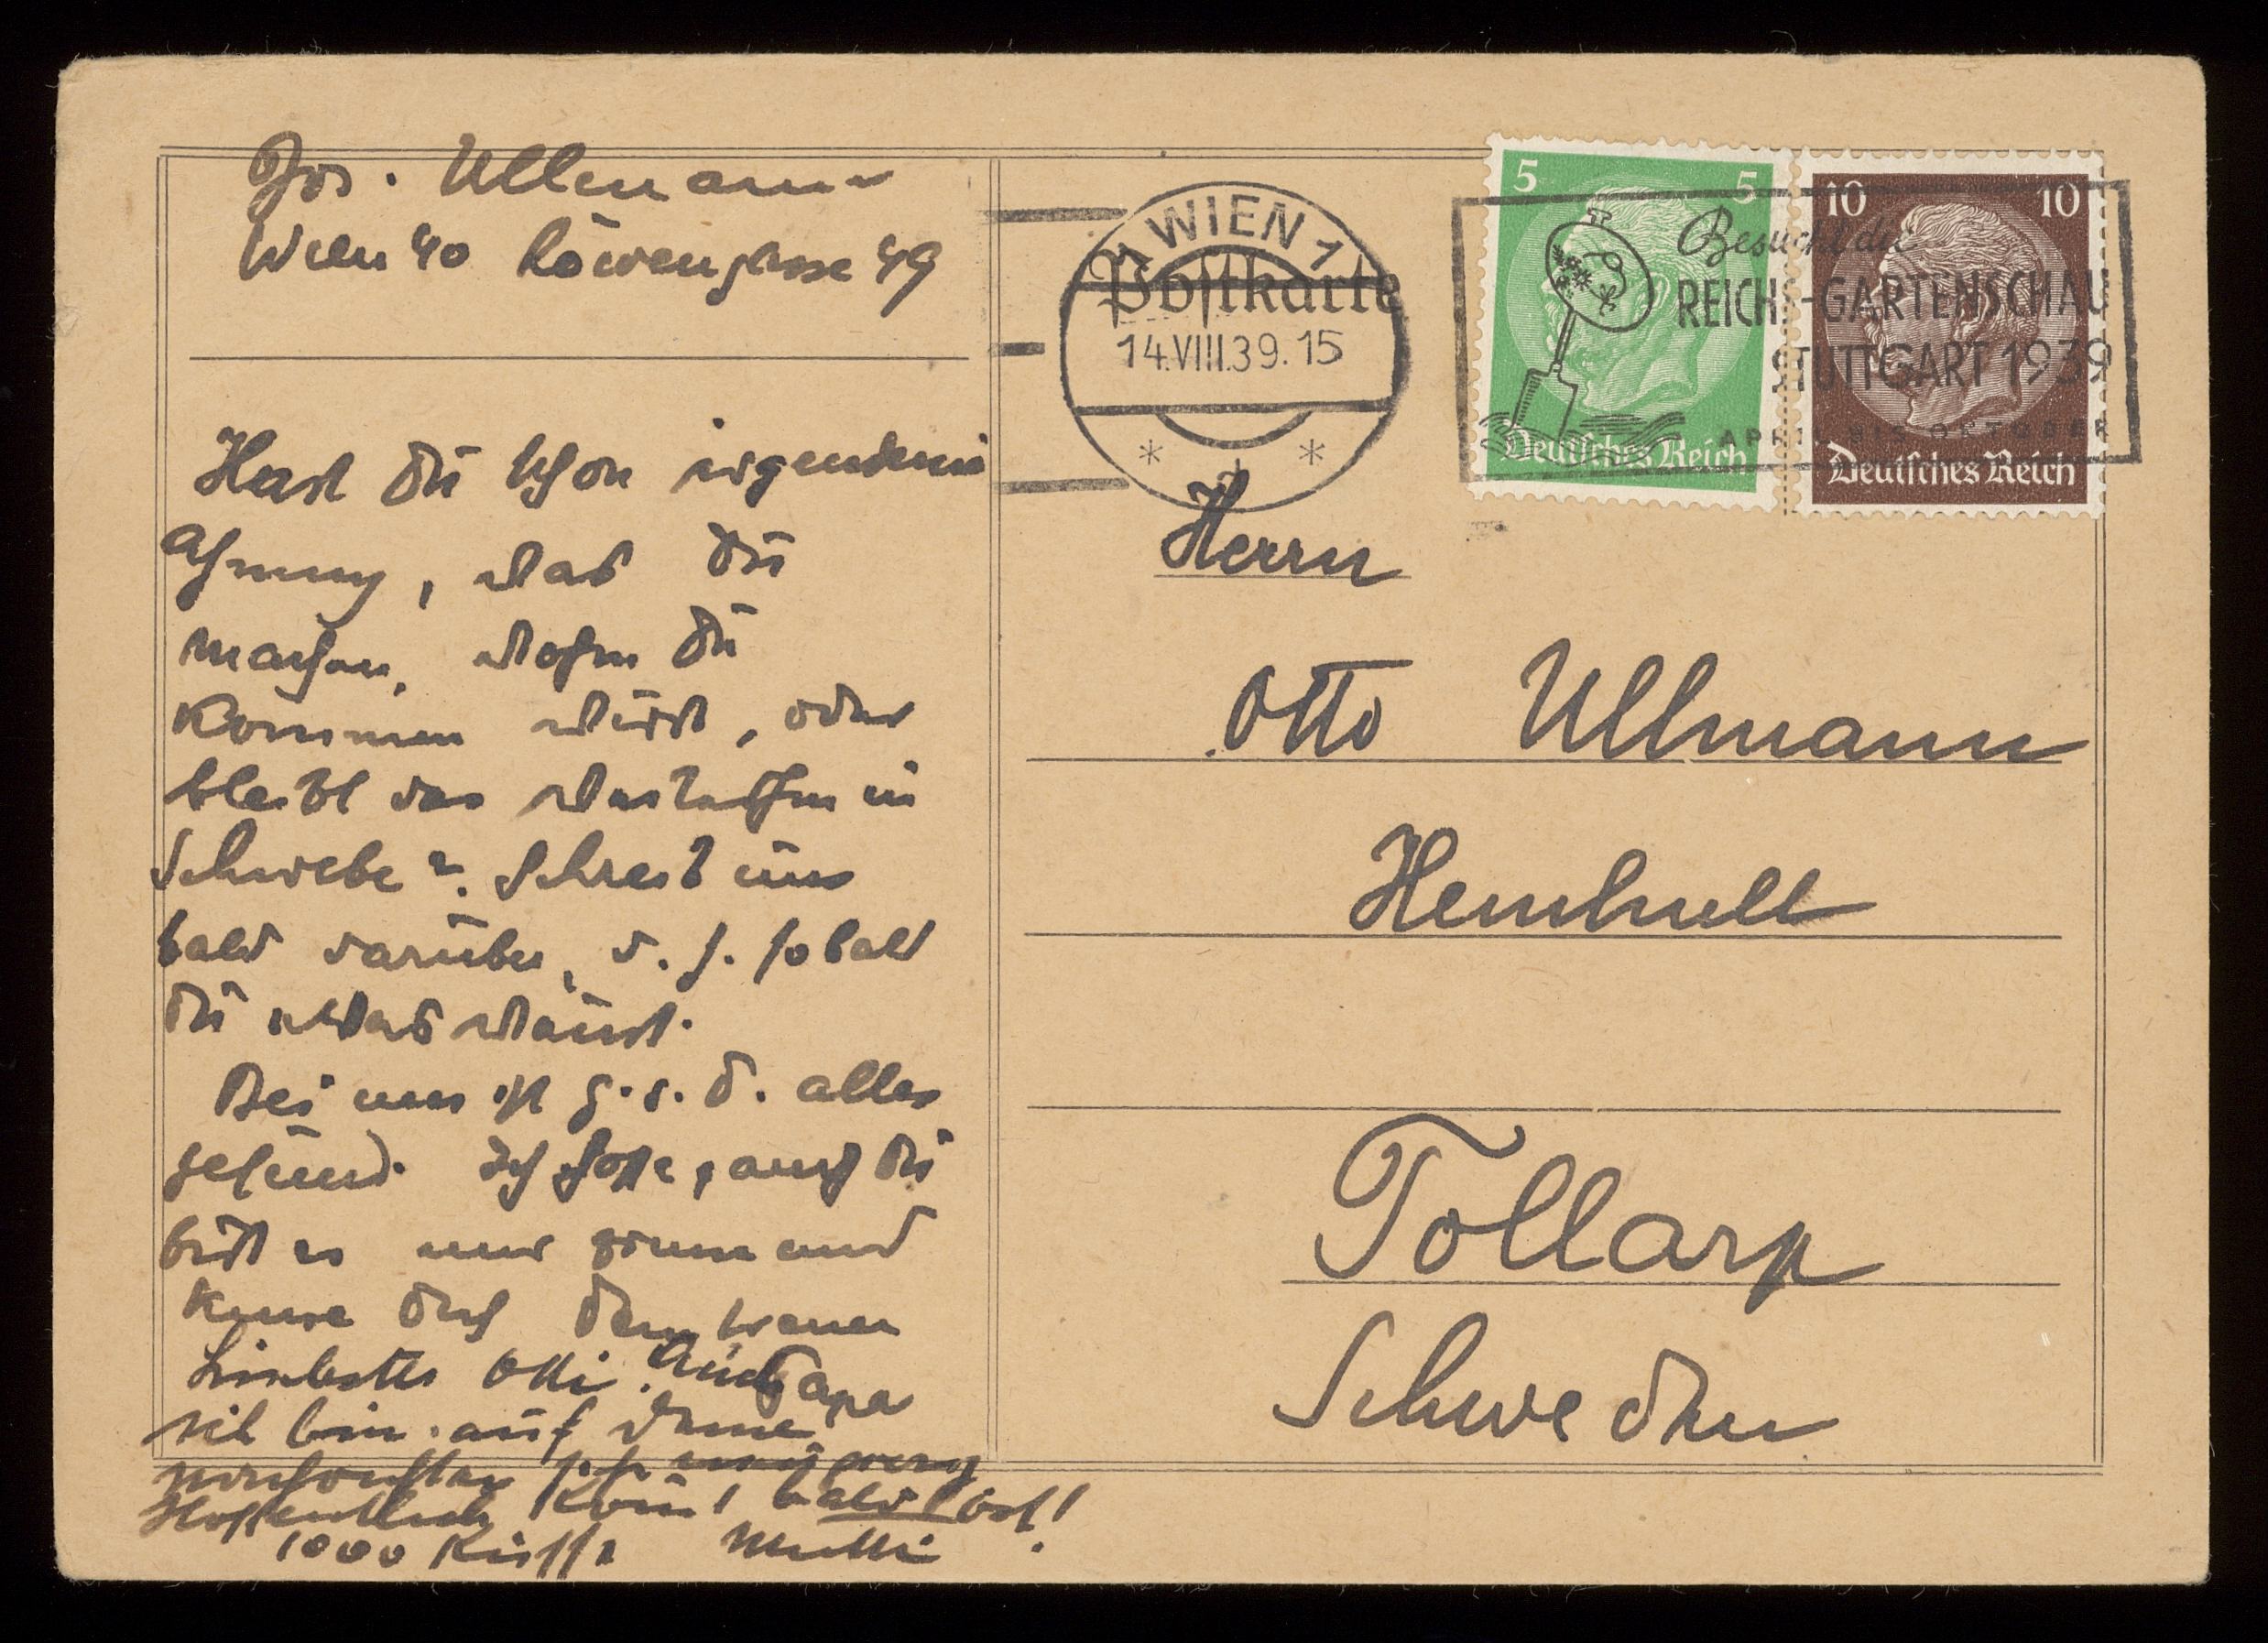 Jos. Ullmann
Wien 40 Löwengasse 49
Hast Du schon irgendeine
Ahnung, was Du
machen, wohin Du
kommen wirst, oder
bleibt das weiterhin in
Schwebe? Schreib uns
bald darüber, d. h. sobald
Du etwas weißt.
Bei uns ist G. s. D. alles
gesund. Ich hoffe, auch Du
bist es und grüße und
küsse Dich Dein treuer
Papa
Liebster Otti! Auch
ich bin auf Deine
Hoffentlich kommt bald Post!
1000 Küsse Mutti
WIEN 1
Postkarte
14.VIII.39.15
5 5
Deutsches Reich
10 10
Deutsches Reich
Besucht die
REICHS-GARTENSCHAU
STUTTGART 1939
APRIL BIS OKTOBER
Herrn
Otto Ullmann
Tollarp
Schweden